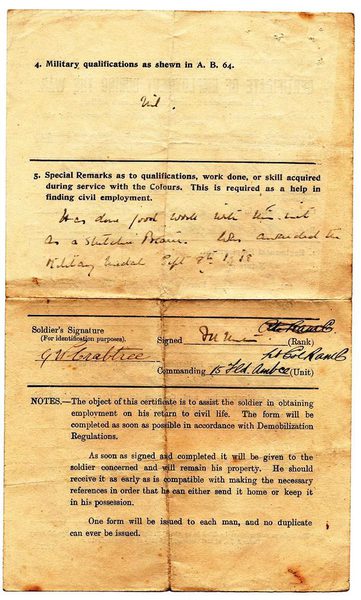 4. Military qualifications as shewn in A. B. 64.
Nil.
5. Special Remarks as to qualifications, work done, or skill acquired
during service with the Colours. This is required as a help in
finding civil employment.
Has done good work with this unit
as a Stretcher Bearer. Was awarded the
Military Medal Sept
Soldier's Signature
(For identification purposes).
Signed
(Rank)
G W Crabtree
Lt Col RAMC
Commanding 15 Fld. Amb ce (Unit)
NOTES.—The object of this certificate is to assist the soldier in obtaining
employment on his return to civil life. The form will be
completed as soon as possible in accordance with Demobilization
Regulations.
As soon as signed and completed it will be given to the
soldier concerned and will remain his property. He should
receive it as early as is compatible with making the necessary
references in order that he can either send it home or keep it
in his possession.
One form will be issued to each man, and no duplicate
can ever be issued.